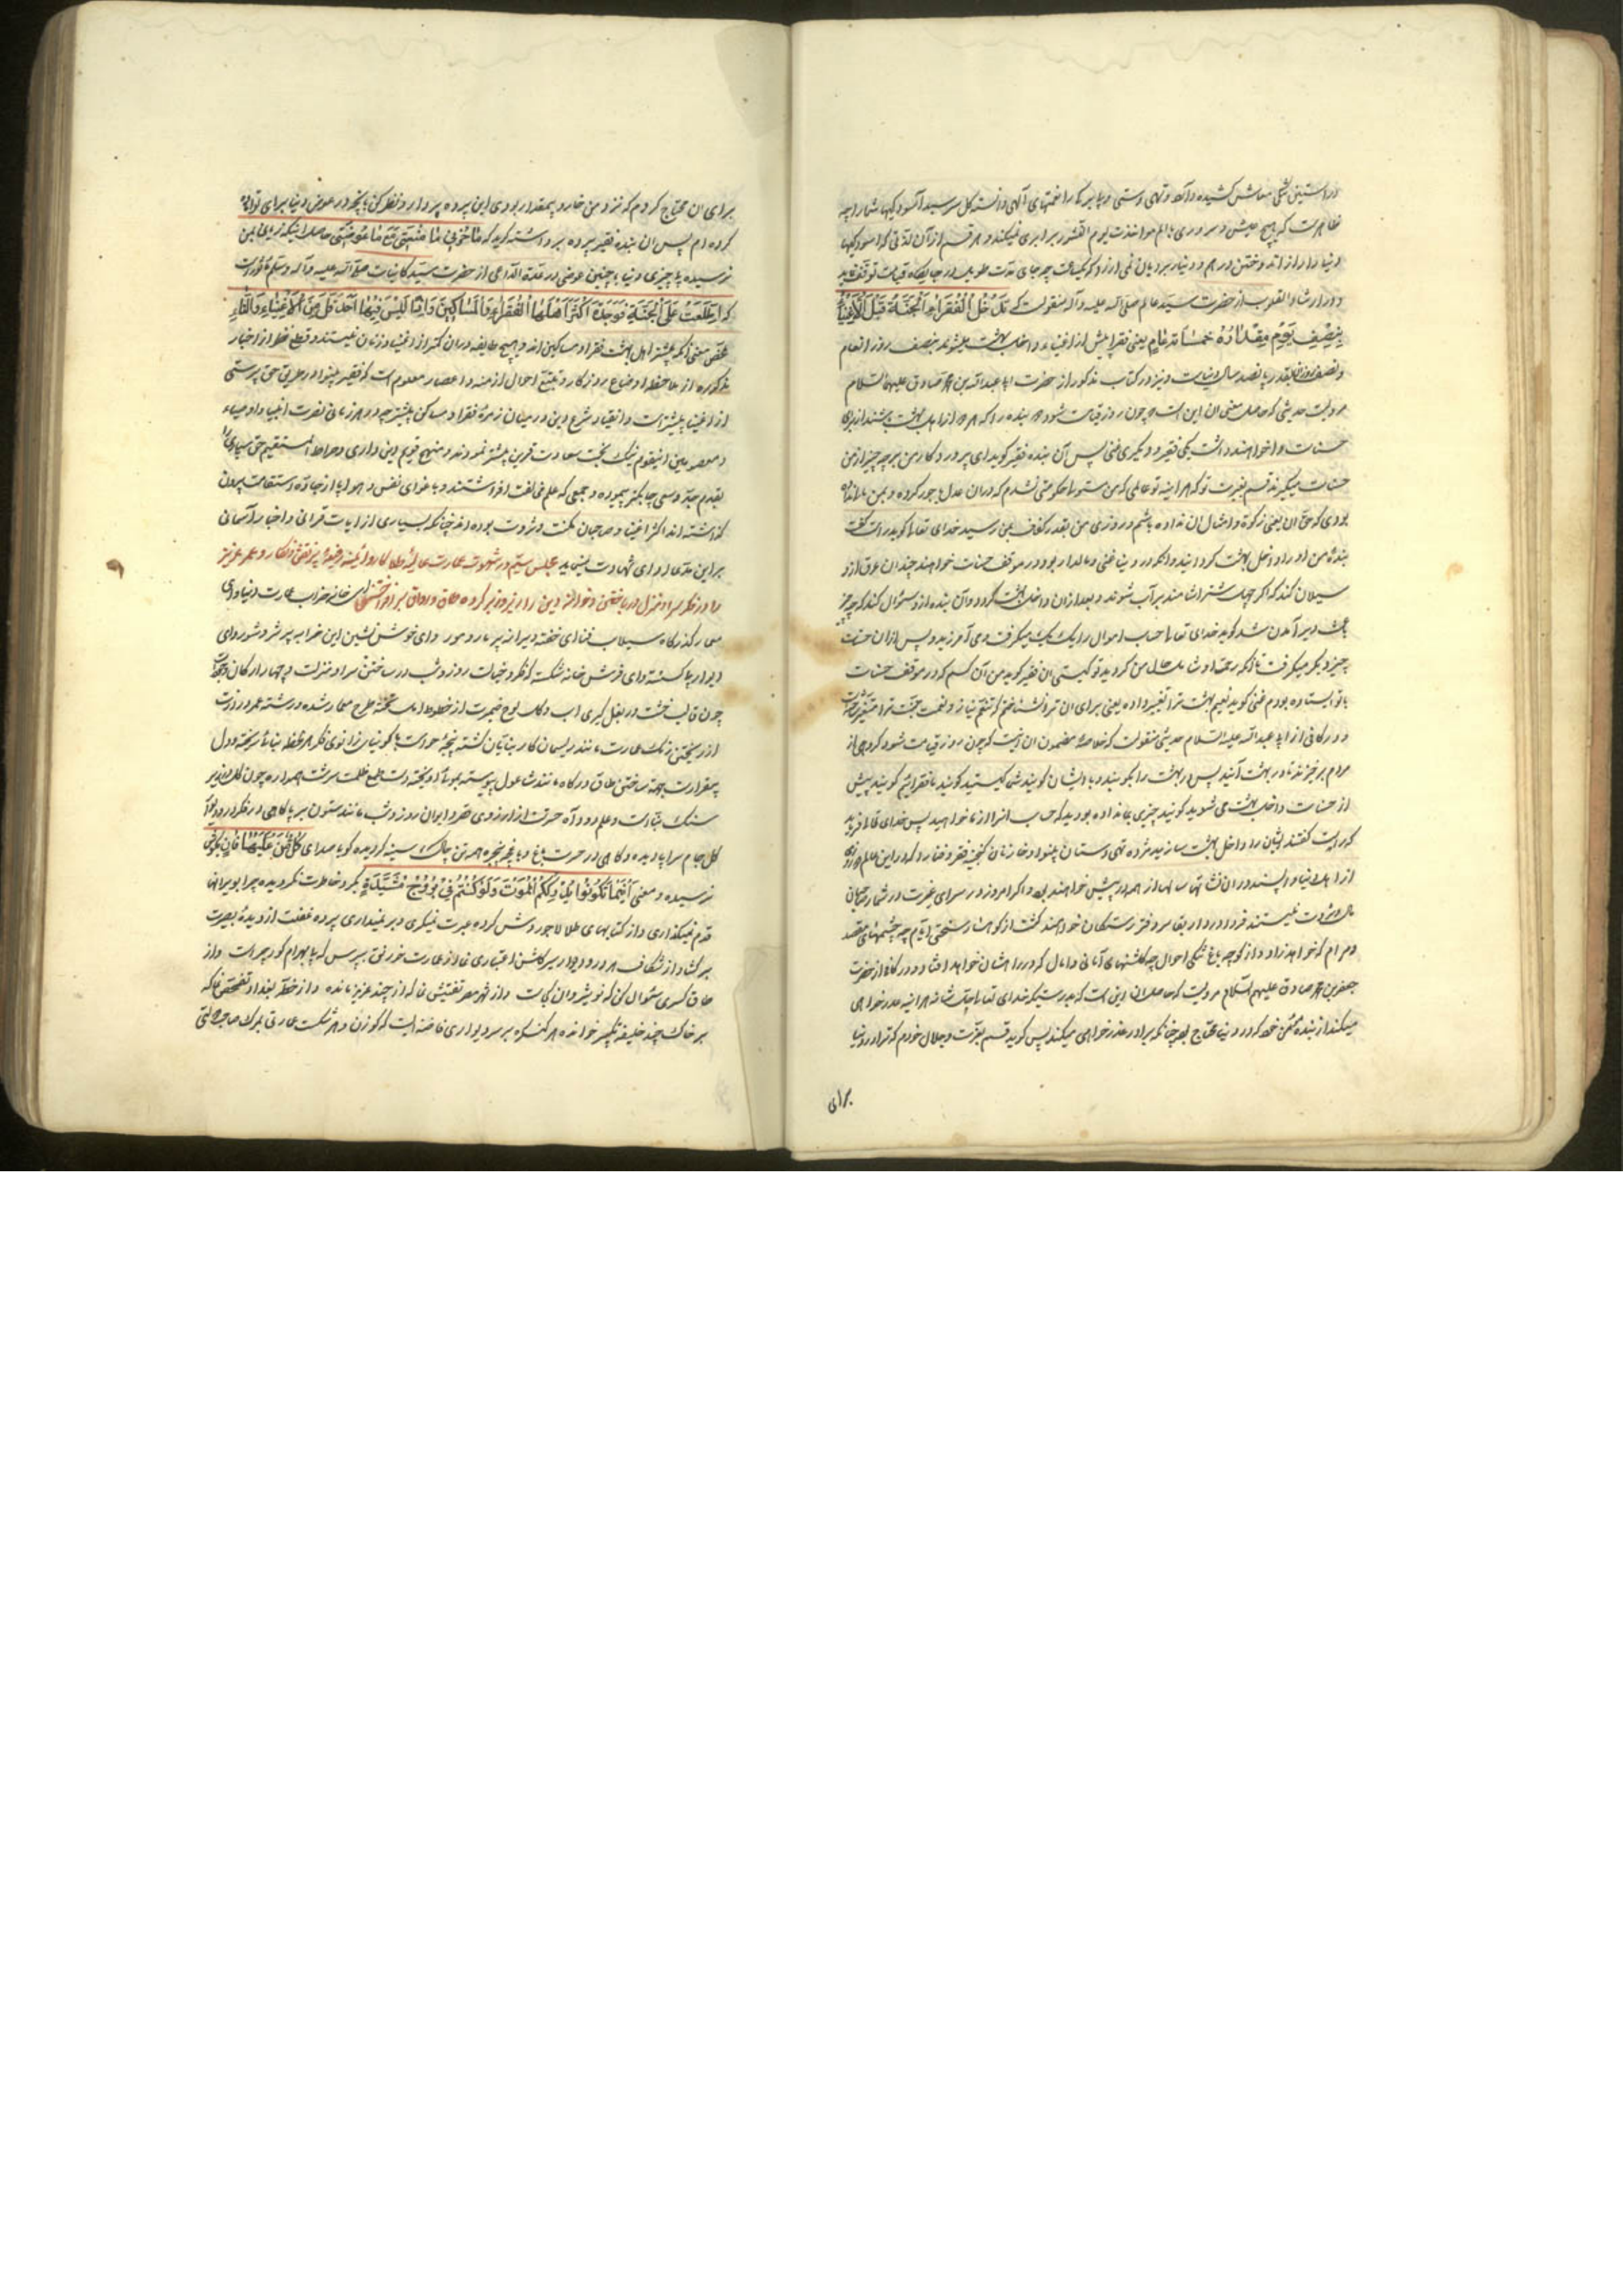 در آستین تنگی معاش کشیده و آنکه و تهی دستی و پا برکه را نعمتهای الهی دانسته کل سرسبد آسودکیها شمارد چه
ظاهرست که هیچ عیش و سروری با الم مواخذت یوم النشور برابری نمیکند و هر قسم از آن لذتی که از سودکیها
دنیا دارد از اندوختن درهم و دینار بر دیان نمی ارزد که یکساعت چه جای مدت طویل در جایکاه قیامت توقف نماید
و در ارشاد القلوب از حضرت سید عالم صلی الله علیه و آله منقولست که تدخل الفقراء الجنة قبل الاغنیاء
بنصف یوم مقداره خمسمائة عام یعنی فقرا پیش از اغنیاء داخل بهشت میشوند بنصف روز از عام
و نصف روز آن بقدر پانصد سال دنیاست و نیز در کتاب مذکور از حضرت ابا عبدالله بن محمد صادق علیهما السلام
مرویست حدیثی که حاصل معنی ان این است که چون روز قیامت شود دو بنده را که هر دو از اهل بهشت باشند از برای
حسنات وا خواهند داشت یکی فقیر و دیکری غنی پس آن بنده فقیر کوید ای پروردکار من بر چه چیز از من
حسنات میکیرند قسم بعزت تو که هر اینه تو عالمی که من متولی حکومتی نشدم که در ان عدل یا جور کرده و بمن مال نداده
بودی که حق ان یعنی زکوة و امثال ان نداده باشم و روزی من بقدر کفاف بمن رسید خدای تعالی کوید راست کفت
بنده من او را داخل بهشت کردانید و انکه در دنیا غنی و مالدار بود در موقف حسنات خواهند چندان عرق از و
سیلان کند که اکر چهل شتر اشامند سیرآب شوند و بعد از ان داخل بهشت کردد و آن بنده از و سئوال کند که چه چیز
باعث دیر آمدن شد کوید خدای تعالی حساب اموال را یک یک میکرفت و می آمرزید و پس از ان حسنات
چیز دیکر میکرفت تا انکه رحمت او شامل حال من کردید تو کیستی ان فقیر کوید من آن کسم که در موقف حسنات
با تو ایستاده بودم غنی کوید نعیم بهشت ترا تغییر داده یعنی برای ان ترا نشناختم که تنعم بنیاز و نعمت جنت ترا متغیر ساخته
و در کافی از ابی عبدالله علیه السلام حدیثی منقولست که خلاصه مضمون ان اینست که چون روز قیامت شود کروهی از
مردم برخیزند تا در بهشت آیند پس در بهشت را بکوبند و با ایشان کویند شما کیستید کویند ما فقرائیم کویند پیش
از حسنات داخل بهشت می شوید کویند چیزی بما نداده بودید که حساب انرا از ما خواهید پس خدای تعالی فرماید
که راست کفتند ایشان را داخل بهشت سازید مژده تهی دستان بینوا و خازنان کنجینه فقر و فنا را که در این عالم روزی
از اهل دنیا واپسند در ان نشاء تها سالها از همه در پیش خواهند بود و اکر امروز در سرای غربت در شمار صاحبان
مال و ثروت نیستند فردا در دار بقا سر دفتر رستکاران خواهند کشت از کوهسار سختی ایام چه چشمهای مقصد
و مرام که خواهد زاد و از کوچه باغ تنکی احوال چه کلشنهای آمانی و امال که در راهشان خواهد افتاد و در کافی از حضرت
جعفر بن محمد صادق علیهم السلام مرویست که حاصل ان این است که بدرستیکه خدای تعالی جل شانه هر اینه عذر خواهی
میکند از بنده مؤمن خود که در دنیا محتاج بود چنانکه برادر عذر خواهی میکند پس کوید قسم بعزت و جلال خودم که ترا در دنیا
برای
برای ان محتاج کردم که نزد من خار و بیمقدار بودی این پرده بردار و نظر کن بانچه در عوض دنیا برای تو اماده
کرده ام پس ان بنده فقیر پرده برداشته کوید که ما ضرنی ما منعتنی مع ما عوضتنی حاصل اینکه زیانی بمن
نرسیده با چیزی دنیا با چنین عوضی در عدة الداعی از حضرت سید کاینات صلی الله علیه و آله وسلم مأثورست
که اطلعت علی الجنة فوجدت اکثر اهلها الفقراء و المساکین و اذا لیس فیها احد اقل من الاغنیاء و النساء
محض معنی آنکه بیشتر اهل بهشت فقرا و مساکین اند و هیچ طایفه در ان کمتر از اغنیا و زنان نیستند و قطع نظر از اخبار
مذکوره از ملاحظه اوضاع روزکار و تتبع احوال ازمنه و اعصار معلوم است که فقیر بینوا در طریق حق پرستی
از اغنیا بیشتر است و انقیاد شرع دین در میان زمره فقرا و مساکین بیشتر چه در هر زمانی نصرت انبیا و اوصیاء
و معصومین اینقوم نیک بخت سعادت قرین بیشتر نموده اند و منهج قویم دین داری و صراط المستقیم حق سپاری را
بقدم جد و سعی چابکتر پیموده و جمعی که علم مخالفت افراشتند و با غوای نفس و هوا پا از جاده استقامت بیرون
کذاشته اند اکثر اغنیا و صاحبان مکنت و ثروت بوده اند چنانکه بسیاری از ایات قرانی و اخبار آسمانی
براین مدعا ادای شهادت مینماید مجلس سیم در شهوت عمارت عالیه طلا کار و ابنیه رفیعه پر نقش و نکار و عمر عزیز
را در فکر سرا و منزل در باختن و خوانه دین را زیر و زبر کرده طاق و رواق برافراختن ای خانه خراب عمارت دنیا و ای
معمار کذرکاه سیلاب فنا ای خفته ویرانه پر مار و مور و ای خوش نشین این خرابه پر شر و شور و ای
دیوار پا کسسته و ای فرش خانه شکسته که فکر و خیالت روز و شب در ساختن سرا و منزلت و چهار ارکان وجودت
چون قالب خشت در بغل کیری اب و کل لوح ضمیرت از خطوط امل تخته طرح معمار شده و رشته عمر درازت
از ریختن رنک عمارت مانند ریسمان کار بنایان کشته
سنک بنیادت و علم دود آه حسرت از ارزوی قصر و ایوان روز و شب مانند ستون بر پا کاهی در فکر در و دیوار
کل جام سراپا دیده و کاهی در حسرت باغ و باغچه پنجره همه تن چاک سینه کردیده کویا صدای کل من علیها فان بکوشت
نرسیده و معنی اینما تکونوا یدرککم الموت و لو کنتم فی بروج مشیدة بکرد خاطرت نکردیده چرا بویرانها
قدم نمیکذاری و از کتابهای طلا لاجوردش کرده عبرت نمیکری و بر نمیداری پرده غفلت از دیده بصیرت
بر کشا و از شکاف هر در و دیوار سیر کلشن اعتباری نما از عمارت خورنق بپرس که پا بهرام کور چراست و از
طاق کسری سئوال کن که نوشیروان کجاست و از شهر مصر تفتیش نما که از چند عزیز مانده و از خطه بغداد تفحص نما که
بر خاک چند خلیفه تکبیر خوانده هر کنکره بر سر دیواری فاخته ایست که کوزن و هر شکست عمارتی بمرک صاحب دولتی